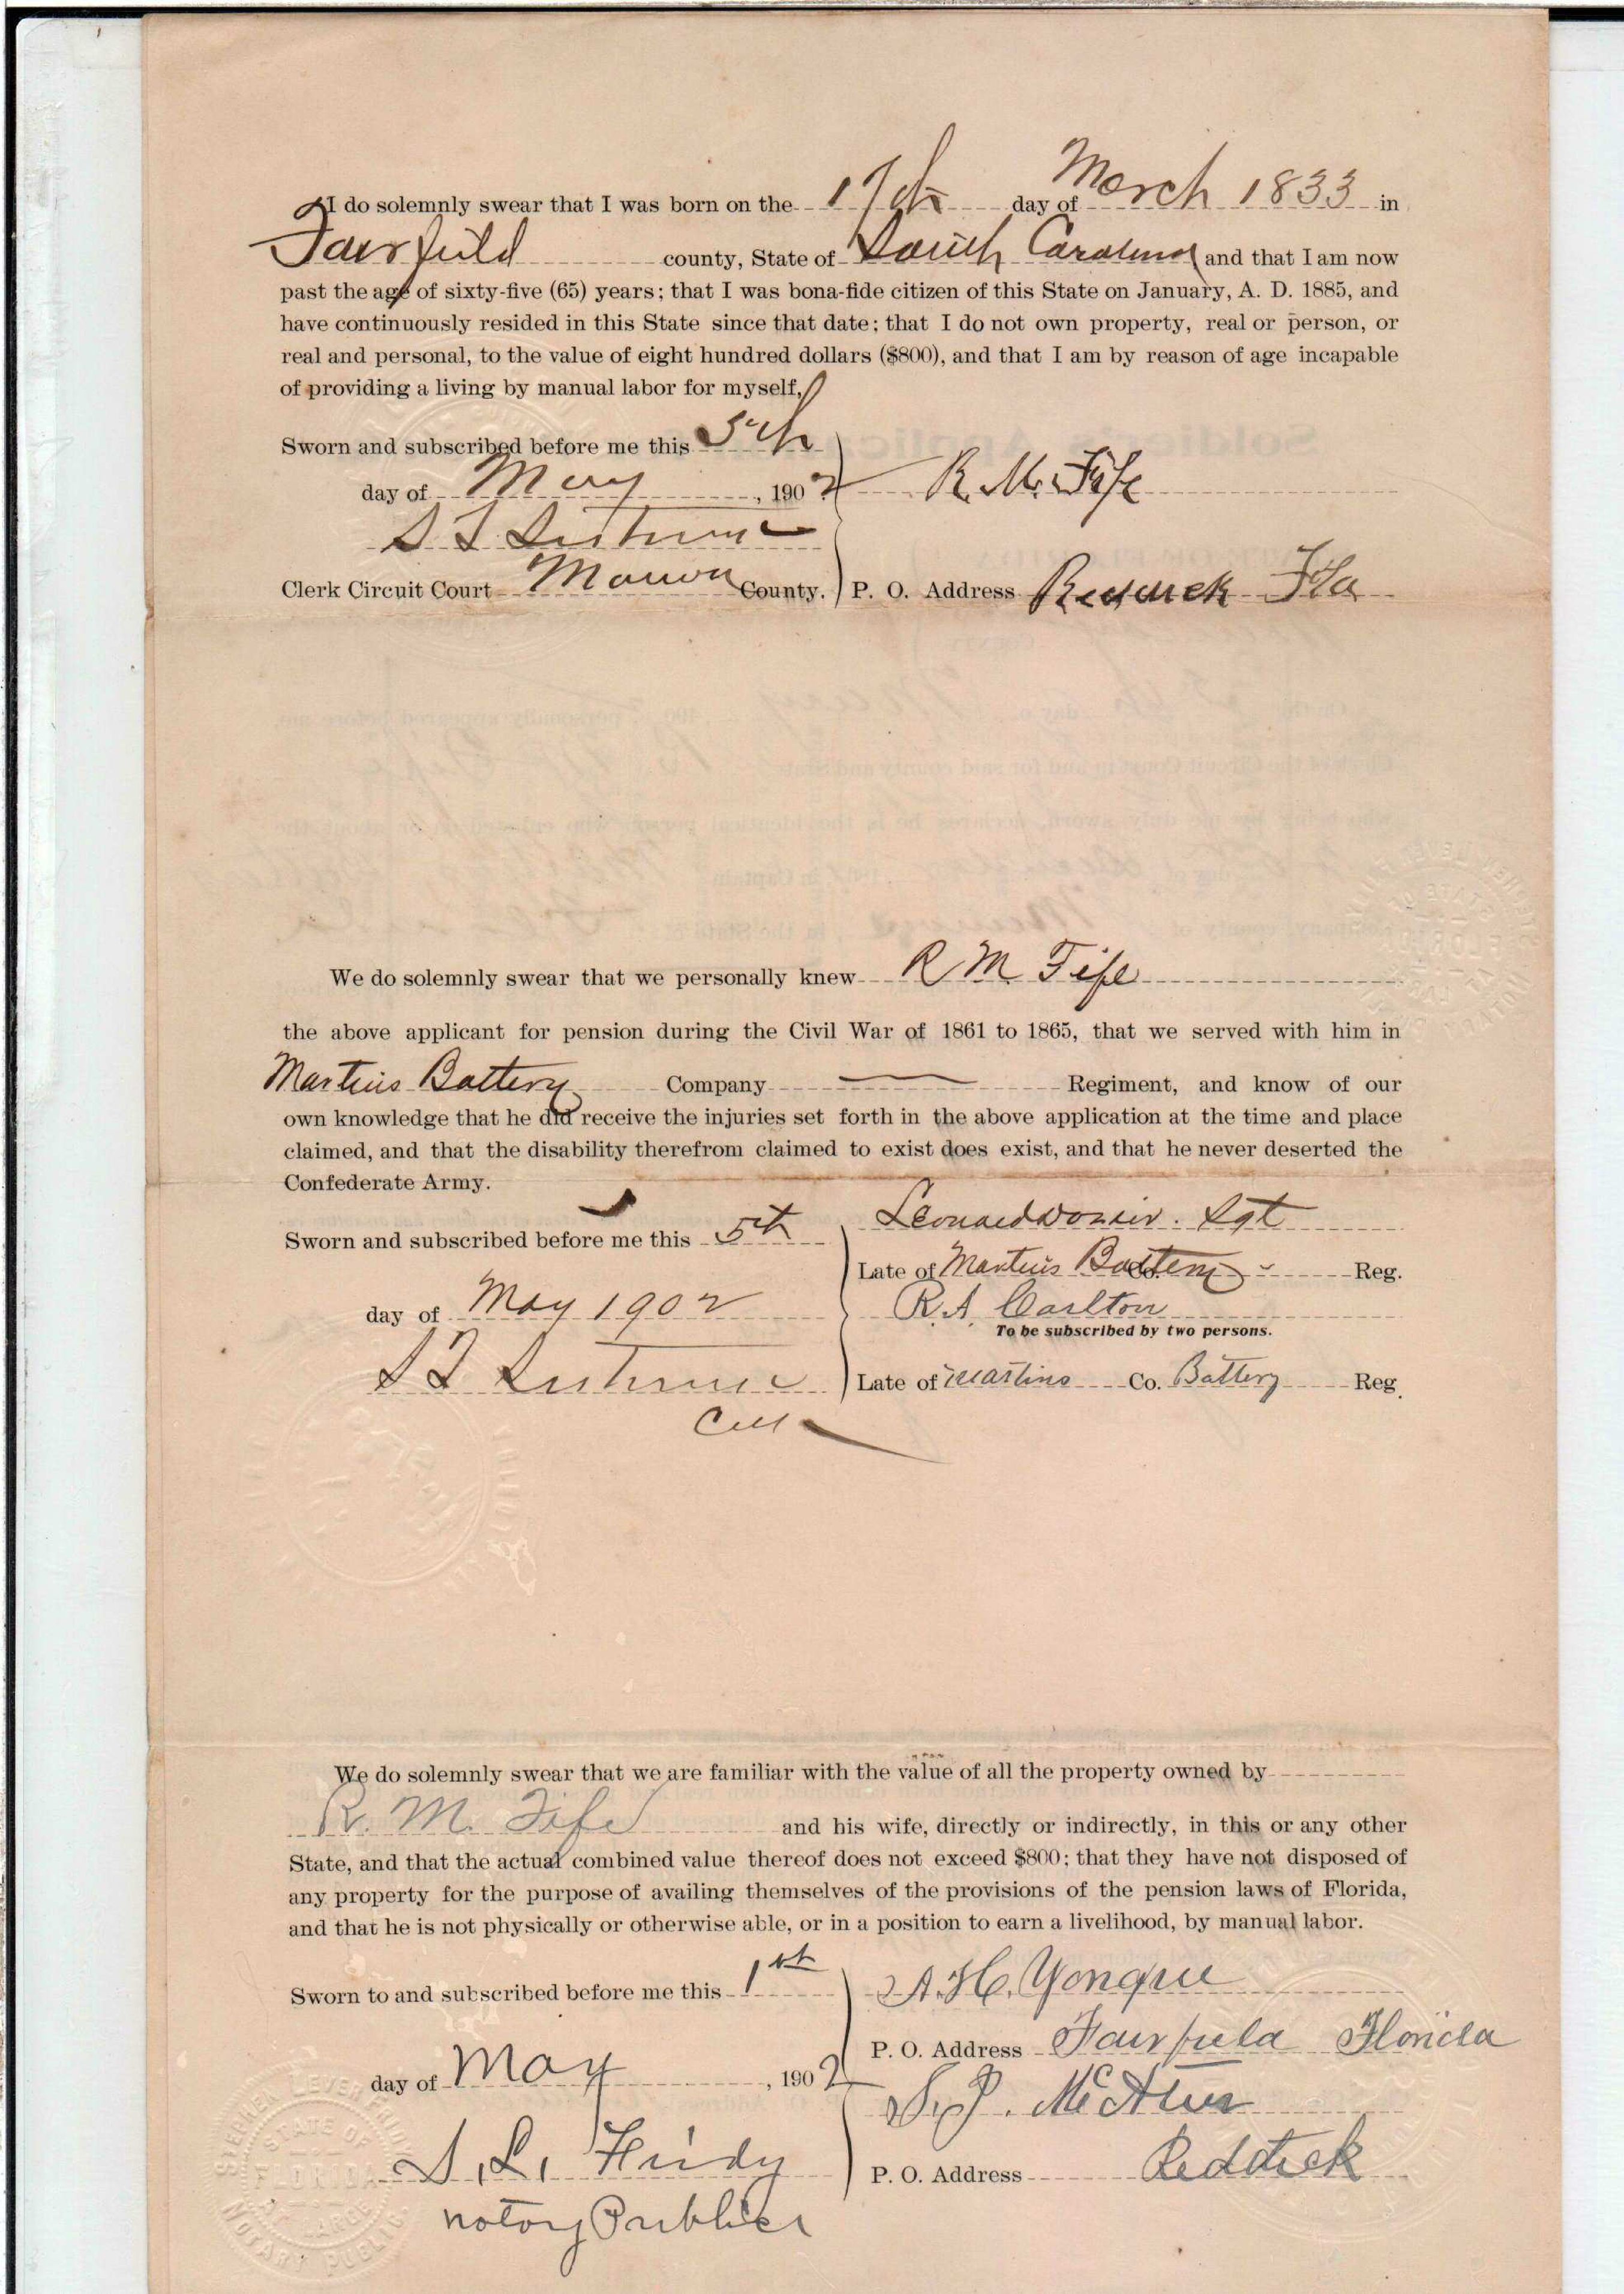 I do solemnly swear that I was born on the 17th day of March 1833 in
Fairfield county, State of South Carolina and that I am now
past the age of sixty-five (65) years; that I was bona-fide citizen of this State on January, A. D. 1885, and
have continuously resided in this State since that date; that I do not own property, real or person, or
real and personal, to the value of eight hundred dollars ($800), and that I am by reason of age incapable
of providing a living by manual labor for myself,
Sworn and subscribed before me this 5th
day of May, 1902 R. M. Fife
S T Sistrunk
Clerk Circuit Court Marion County. P. O. Address Reddick Fla
We do solemnly swear that we personally knew R M Fife
the above applicant for pension during the Civil War of 1861 to 1865, that we served with him in
Martins Battery Company — Regiment, and know of our
own knowledge that he did receive the injuries set forth in the above application at the time and place
claimed, and that the disability therefrom claimed to exist does exist, and that he never deserted the
Confederate Army.
Leonard Dozier. Sgt
Sworn and subscribed before me this 5th
Late of Martins Battery Co. Reg.
day of May 1902 R. A. Carlton
To be subscribed by two persons.
S T Sistrunk Late of Martins Co. Battery Reg.
Clk
We do solemnly swear that we are familiar with the value of all the property owned by
R. M. Fife and his wife, directly or indirectly, in this or any other
State, and that the actual combined value thereof does not exceed $800; that they have not disposed of
any property for the purpose of availing themselves of the provisions of the pension laws of Florida,
and that he is not physically or otherwise able, or in a position to earn a livelihood, by manual labor.
Sworn to and subscribed before me this 1st A. H. Yongue
P. O. Address Fairfield Florida
day of May, 1902
S. J. McAteer
S. L. Fridy P. O. Address Reddick
Notary Public
STATE OF
FLORIDA
AT LARGE
NOTARY PUBLIC